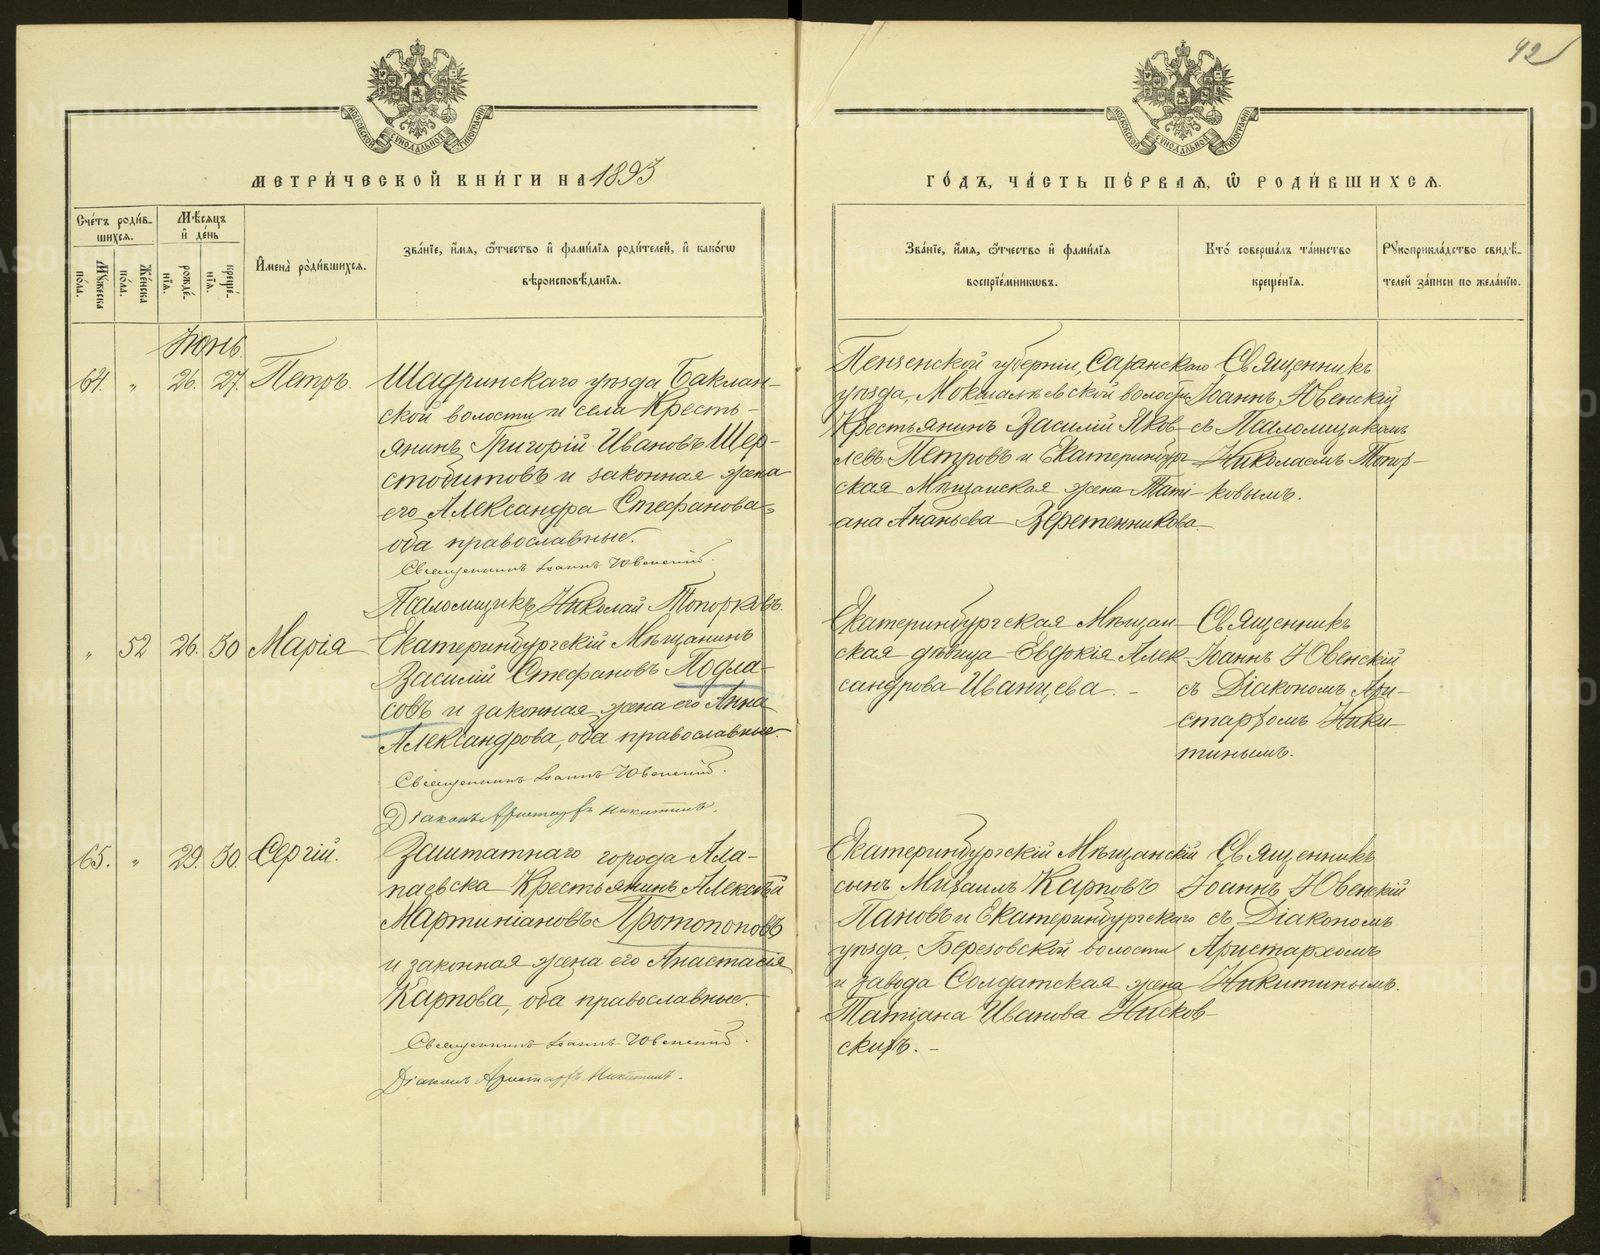 42
МОСКОВСКОЙ СѴНОДАЛЬНОЙ ТИПОГРАФІИ
МОСКОВСКОЙ СѴНОДАЛЬНОЙ ТИПОГРАФІИ
МЕТРИ́ЧЕСКОЙ КНИ́ГИ НА 1893
ГО́ДЪ, ЧА́СТЬ ПЕ́РВАЯ, Ѿ РОДИ́ВШИХСЯ.
Сче́тъ роди́в-
шихся.
Мѣ́сяцъ
и҆ де́нь
Му́жеска по́ла.
Же́нска по́ла.
рожде́-нія.
креще́-нія.
И҆мена̀ роди́вшихся.
Зва́ніе, и҆́мя, ѻ҆́тчество и҆ фами́лїя роди́телей, и҆ како́гѡ
вѣроисповѣ́данія.
Зва́ніе, и҆́мя, ѻ҆́тчество и҆ фами́лїя
воспріе́мниковъ.
Кто̀ соверша́лъ та́инство
креще́нія.
Рукоприкла́дство свидѣ́-
телей за́писи по жела́нію.
Іюнь.
64. " 26. 27. Петръ.
Шадринскаго уѣзда Баклан-
ской волости и села Кресть-
янинъ Григорій Ивановъ Шер-
стобитовъ и законная жена
его Александра Стефанова-
оба православные.
Священникъ Іоаннъ Ювенскій.
Псаломщикъ Николай Топорковъ.
Пензенской губерніи, Саранскаго
уѣзда, Мокшалѣевской волости
Крестьянинъ Василій Яков-
левъ Петровъ и Екатеринбург-
ская Мѣщанская жена Таті-
ана Ананьева Веретенникова
Священникъ
Іоаннъ Ювенскій
съ Псаломщикомъ
Николаемъ Топор-
ковымъ.
" 52 26. 30 Марія
Екатеринбургскій Мѣщанинъ
Василій Стефановъ Подла-
совъ и законная жена его Анна
Александрова, оба православные.
Священникъ Іоаннъ Ювенскій.
Діаконъ Аристархъ Никитинъ.
Екатеринбургская Мѣщан-
ская дѣвица Евдокія Алек
сандрова Иванцева. -
Священникъ
Іоаннъ Ювенскій
съ Діакономъ Ари-
стархомъ Ники-
тинымъ.
65. " 29. 30. Сергій.
Заштатнаго города Ала-
паевска Крестьянинъ Алексѣй
Мартиніановъ Протопоповъ
и законная жена его Анастасія
Карпова, оба православные.
Священникъ Іоаннъ Ювенскій.
Діаконъ Аристархъ Никитинъ.
Екатеринбургскій Мѣщанскій
сынъ Михаилъ Карповъ
Пановъ и Екатеринбургскаго
уѣзда, Березовской волости
и завода Солдатская жена
Татіана Иванова Нисков-
скихъ. -
Священникъ
Іоаннъ Ювенскій
съ Діакономъ
Аристархомъ
Никитинымъ.
METRIKI.GASO-URAL.RU